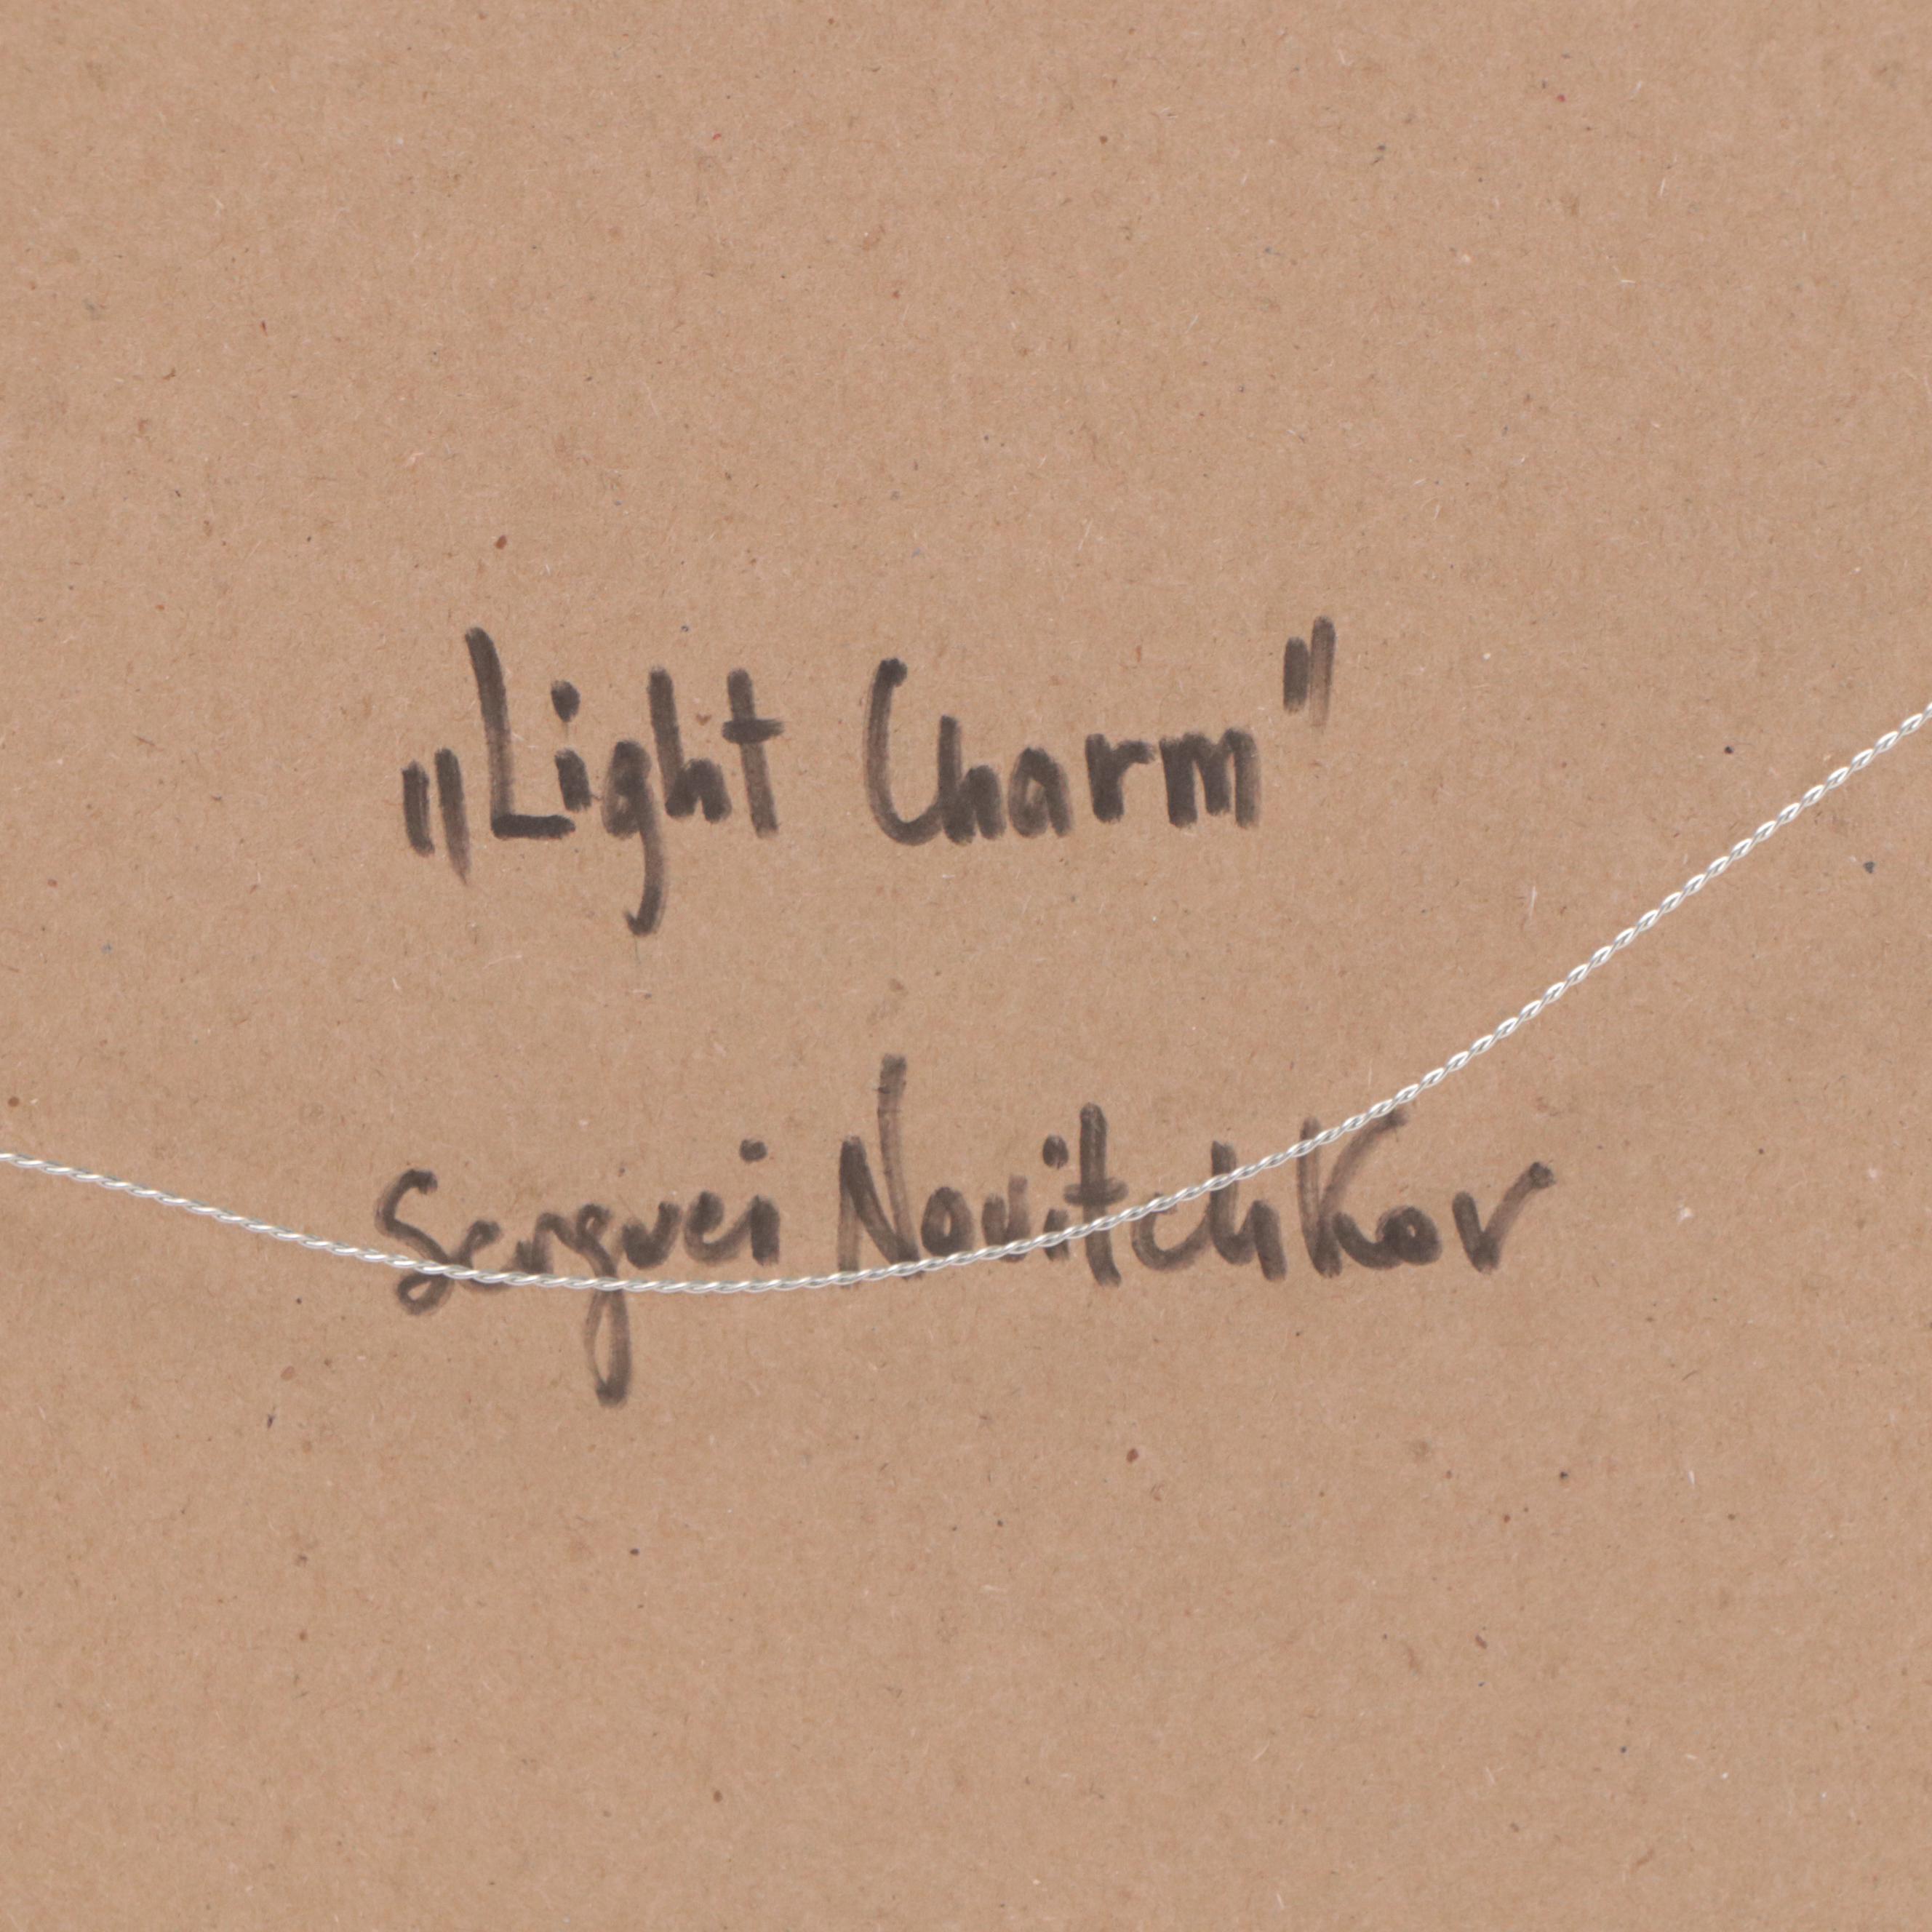 „Light Charm"
Serguei Novitchkov